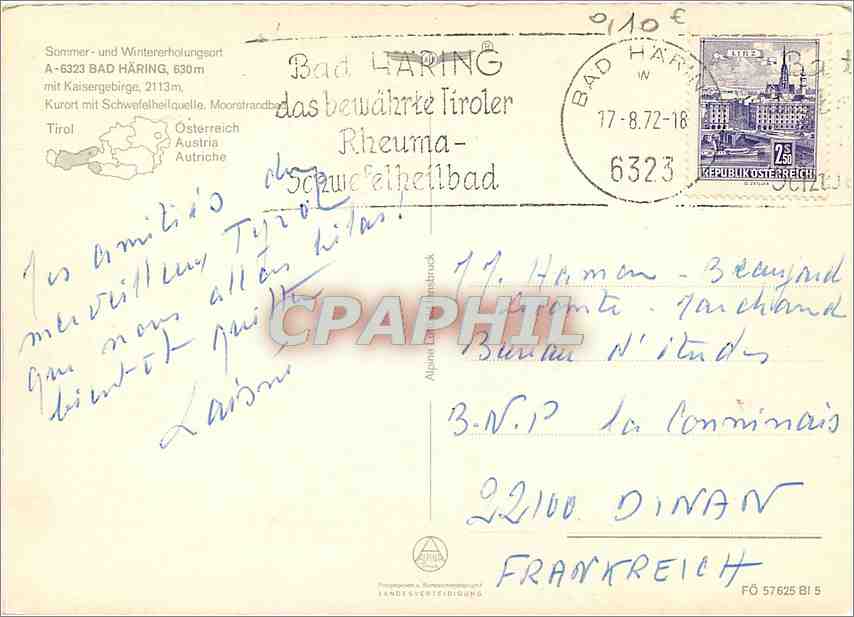 0,10 €
Sommer- und Wintererholungsort
A-6323 BAD HÄRING, 630m
mit Kaisergebirge, 2113m,
Kurort mit Schwefelheilquelle, Moorstrandbad
Tirol
Österreich
Austria
Autriche
Bad HÄRING
das bewährte Tiroler
Rheuma-
Schwefelheilbad
BAD HÄRING
17-8.72-18
6323
LINZ
2S50
REPUBLIK ÖSTERREICH
amitiés du
merveilleux Tyrol
que nous allons hélas!
bientôt quitter
Laisné
CPAPHIL
Alpine
MM. Hamon - Beaujard
Lecomte - Marchand
Bureau d'études
B.N.P la Conninais
22100 DINAN
FRANKREICH
LANDESVERTEIDIGUNG
FÖ 57625 BI 5